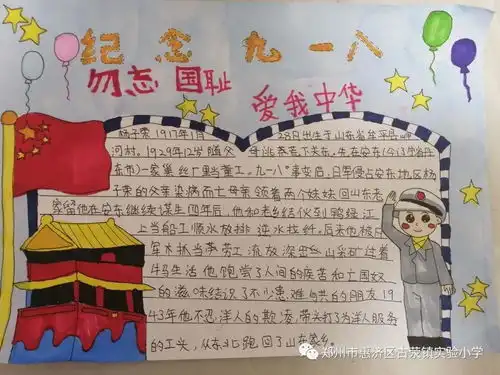 纪念九一八
勿忘国耻
爱我中华
杨子荣1917年1月28日出生于山东省牟平县
河村。1929年12岁随父母逃荒去下关东，先在安东(今辽宁省丹
东市)一家巢丝厂里当童工。九一八"事变后，日军侵占安东地区杨
子荣的父亲染病而亡母亲领着两个妹妹回山东老
家留他在安东继续谋生四年后，他和老乡结伙到鸭绿江
上当船工顺水放排逆水拉纤。后来他被日
军木抓当劳工流放深山采矿过着
牛马生活他饱尝了人间的疾苦和亡国奴
的滋味结识了不少患难与共的朋友19
43年他不忍洋人的欺凌，带头打了为洋人服务
的工头，从东北跑回了山东家乡
郑州市惠济区古荥镇实验小学